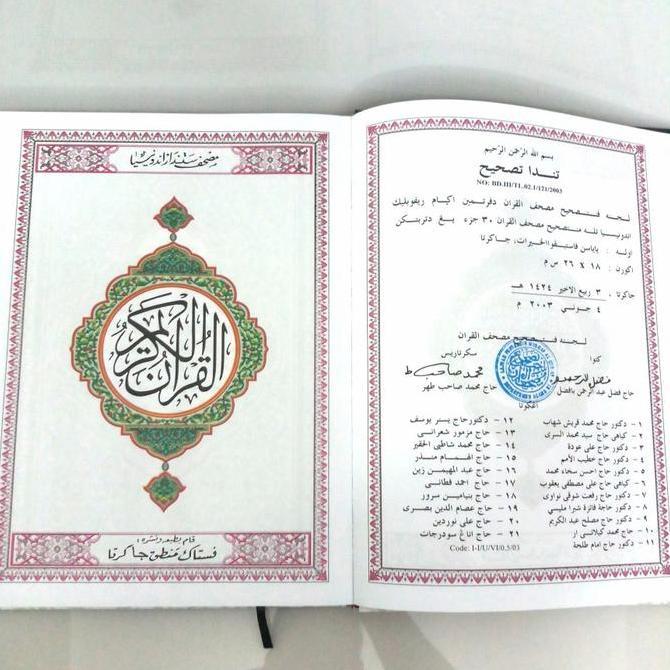 مصحف ستاندار اندونيسيا
القرآن الكريم
قام بطبعه ونشره :
فستاك منطق جاكرتا
بسم الله الرحمن الرحيم
تندا تصحيح
NO: BD.III/TL.02.1/121/2003
لجنه فنتصحيح مصحف القران دفرتمين اكام ريفوبليك
اندونيسيا تله منتصحيح مصحف القران ٣٠ جزء يڠ دتربتكن
اوله : ياياسن فاستيفوا الخيرات، جاكرتا
اكورن : ١٨ X ٢٦ س م
جاكرتا ، ٣ ربيع الاخير ١٤٢٤ هـ
٤ جوني ٢٠٠٣ م
لجنه فنتصحيح مصحف القران
كتوا
سكرتاريس
حاج فضل عبد الرحمن بافضل
حاج محمد صاحب طهر
اڠڬوتا
١ - دكتور حاج محمد قريش شهاب
٢ - كياهي حاج سيد محمد السري
٣ - دكتور حاج علي عودة
٤ - دكتور حاج خطيب الأمم
٥ - دكتور حاج احسن سخاء محمد
٦ - كياهي حاج علي مصطفى يعقوب
٧ - دكتور حاج رفعت شوقي نواوي
٨ - دكتور حاجة فائزة شبرا مليسي
٩ - دكتور حاج مصلح عبد الكريم
١٠ - دكتور حاج محمد كيلاني ار
١١ - دكتور حاج امام طلحة
١٢ - دكتور حاج يسنر يوسف
١٣ - حاج مزمور شعراني
١٤ - حاج محمد شاطبي الحقير
١٥ - حاج الهمام منذر
١٦ - حاج عبد المهيمن زين
١٧ - حاج احمد فطاني
١٨ - حاج بنيامين سرور
١٩ - حاج عصام الدين بصري
٢٠ - حاج علي نوردين
٢١ - حاج اناڠ سودرجات
Code: I-I/U/VI/0.5/03